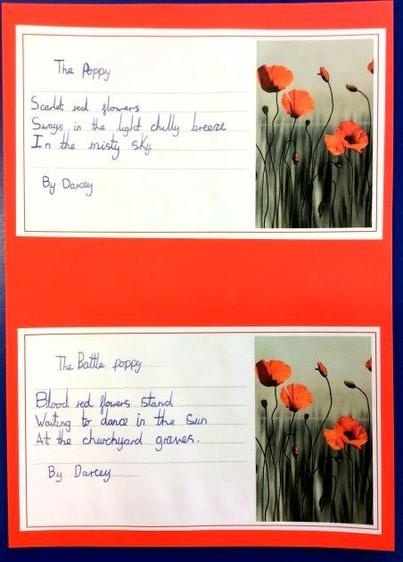 The Poppy
Scarlet red flowers
Sways in the light chilly breeze
In the misty sky
By Darcey
The Battle poppy
Blood red flowers stand
Waiting to dance in the Sun
At the churchyard graves.
By Darcey